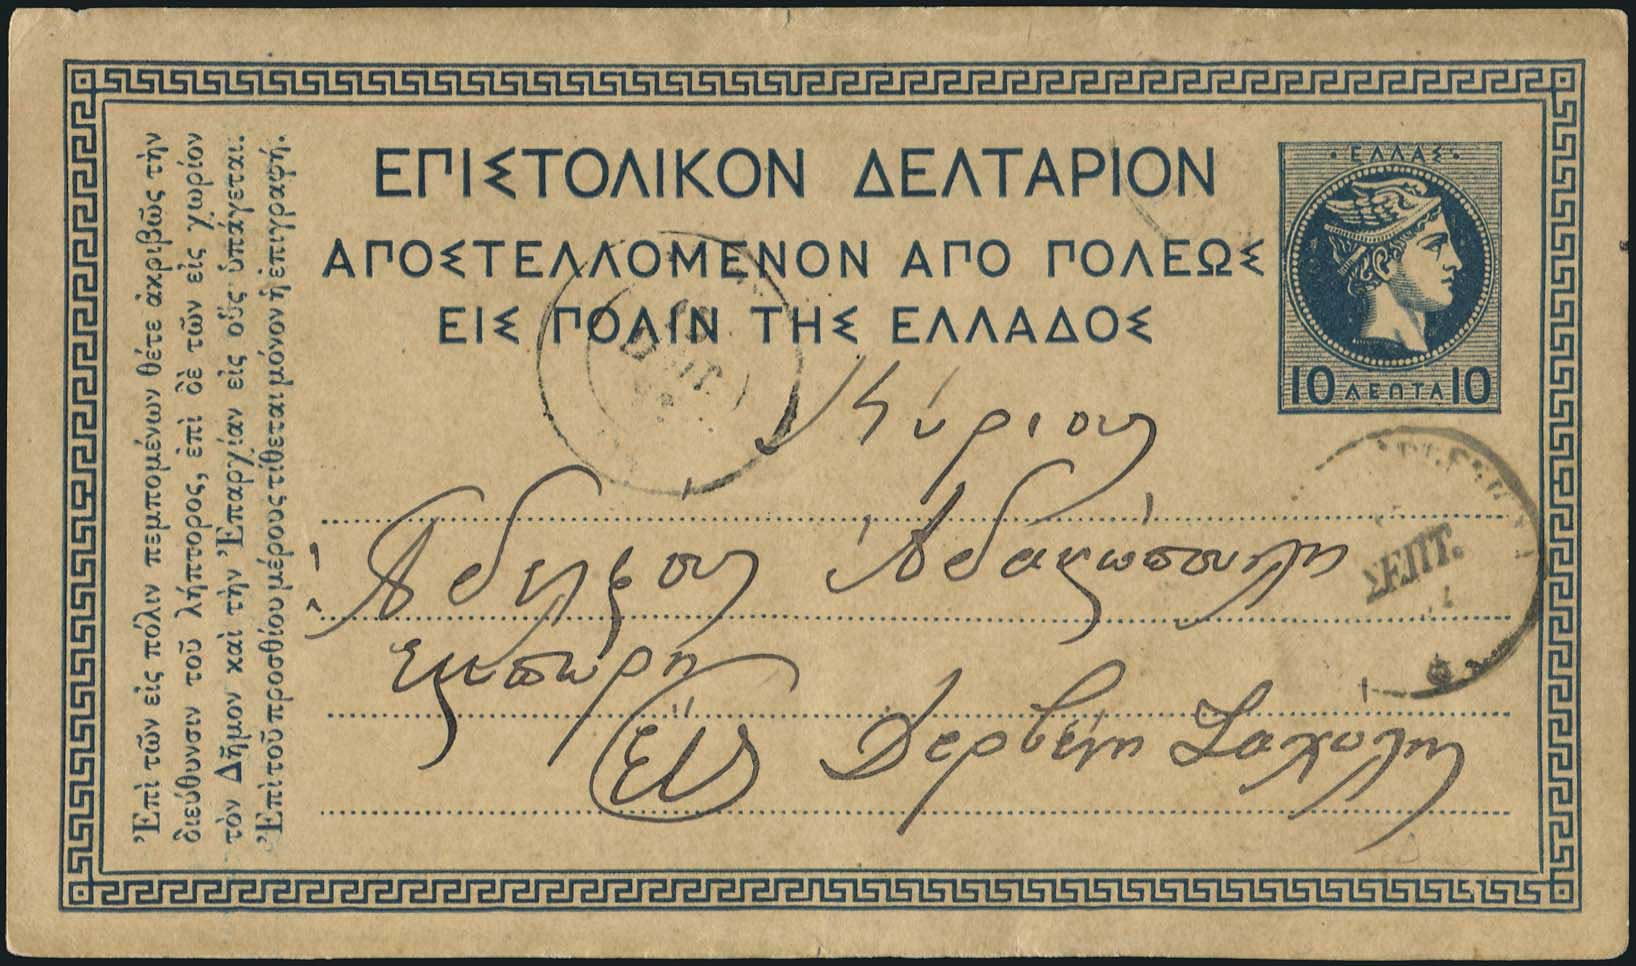 ΕΠΙΣΤΟΛΙΚΟΝ ΔΕΛΤΑΡΙΟΝ
ΑΠΟΣΤΕΛΛΟΜΕΝΟΝ ΑΠΟ ΠΟΛΕΩΣ
ΕΙΣ ΠΟΛΙΝ ΤΗΣ ΕΛΛΑΔΟΣ
·ΕΛΛΑΣ·
10 ΛΕΠΤΑ 10
Ἐπὶ τῶν εἰς πόλιν πεμπομένων θέτε ἀκριβῶς τὴν
διεύθυνσιν τοῦ λήπτορος, ἐπὶ δὲ τῶν εἰς χωρίον
τὸν Δῆμον καὶ τὴν Ἐπαρχίαν εἰς οὓς ὑπάγεται.
Ἐπὶ τοῦ προσθίου μέρους τίθεται μόνον ἡ ἐπιγραφή.
Κύριους
Ἀδελφους
Εἰς Δερβένη
ΣΕΠΤ.